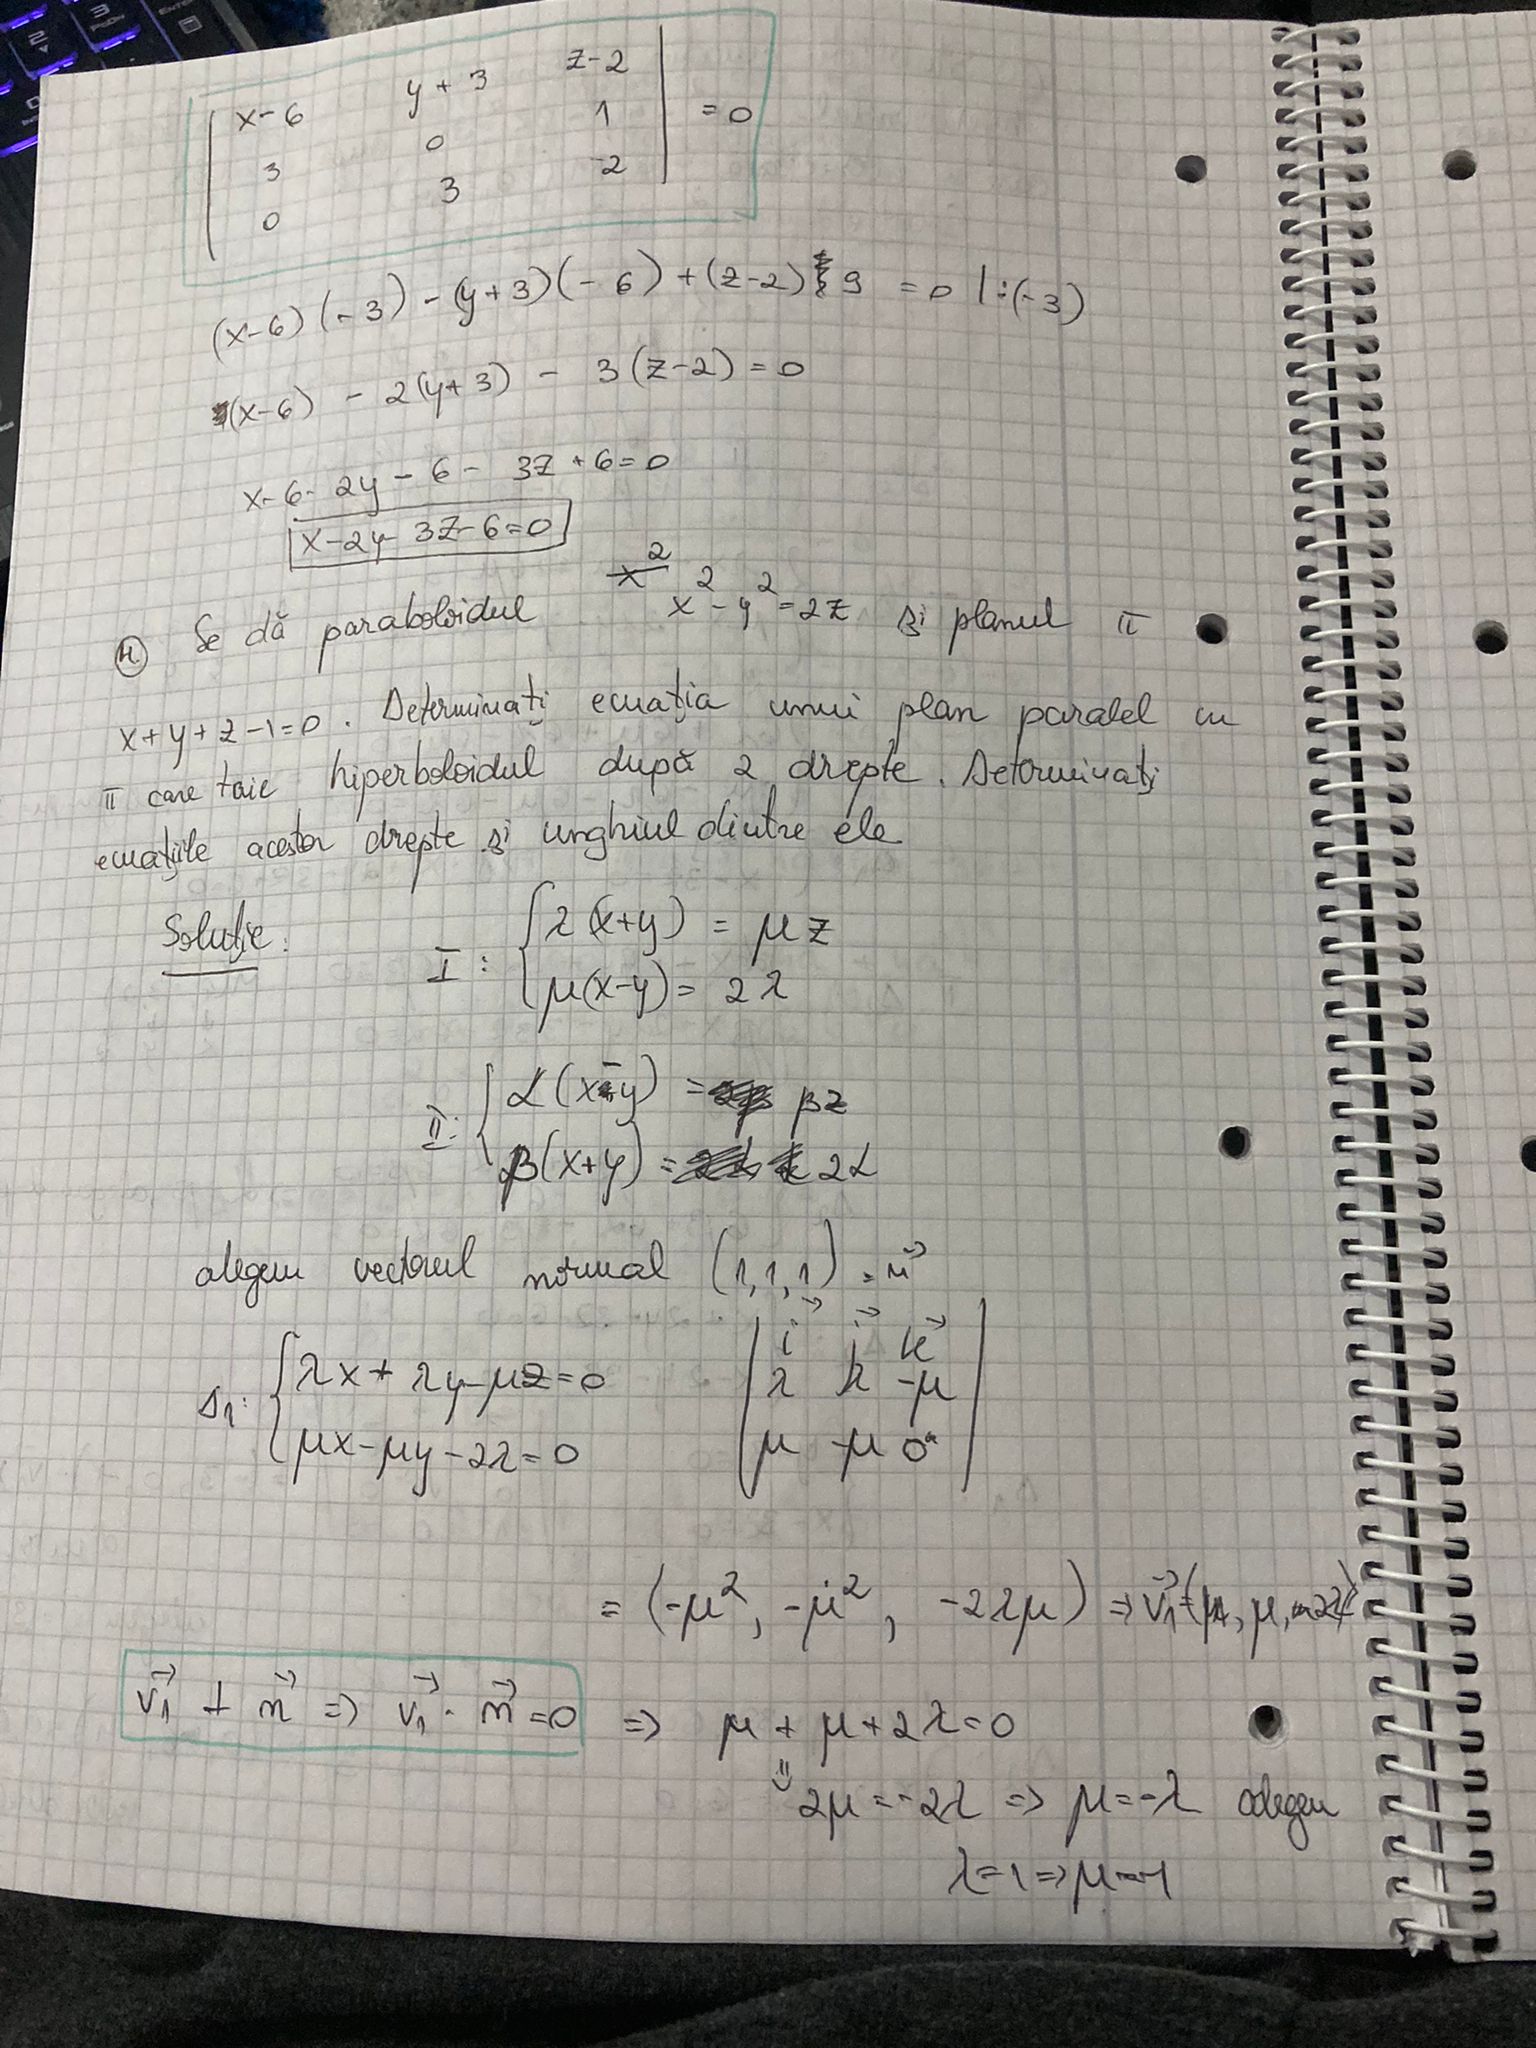 | x-6 y+3 z-2 |
| 3 0 1 | = 0
| 0 3 -2 |
(x-6)(-3) - (y+3)(-6) + (z-2) 9 = 0 | :(-3)
(x-6) - 2(y+3) - 3(z-2) = 0
x-6-2y-6-3z+6=0
x-2y-3z-6=0
④ Se dă paraboloidul x²-y²=2z și planul π
x+y+z-1=0. Determinați ecuația unui plan paralel cu
π care taie hiperboloidul după 2 drepte. Determinați
ecuațiile acestor drepte și unghiul dintre ele
Soluție:
I: { λ(x+y) = μz
μ(x-y) = 2λ
II: { α(x-y) = βz
β(x+y) = 2α
alegem vectorul normal (1,1,1) = n⃗
Δ₁: { λx+λy-μz=0
μx-μy-2λ=0
| i⃗ j⃗ k⃗ |
| λ λ -μ |
| μ -μ 0 |
= (-μ², -μ², -2λμ) => v₁⃗=(μ, μ, 2λ)
v₁⃗ ⊥ n⃗ => v₁⃗ · n⃗ =0 => μ+μ+2λ=0
=> 2μ=-2λ => μ=-λ alegem
λ=1 => μ=-1